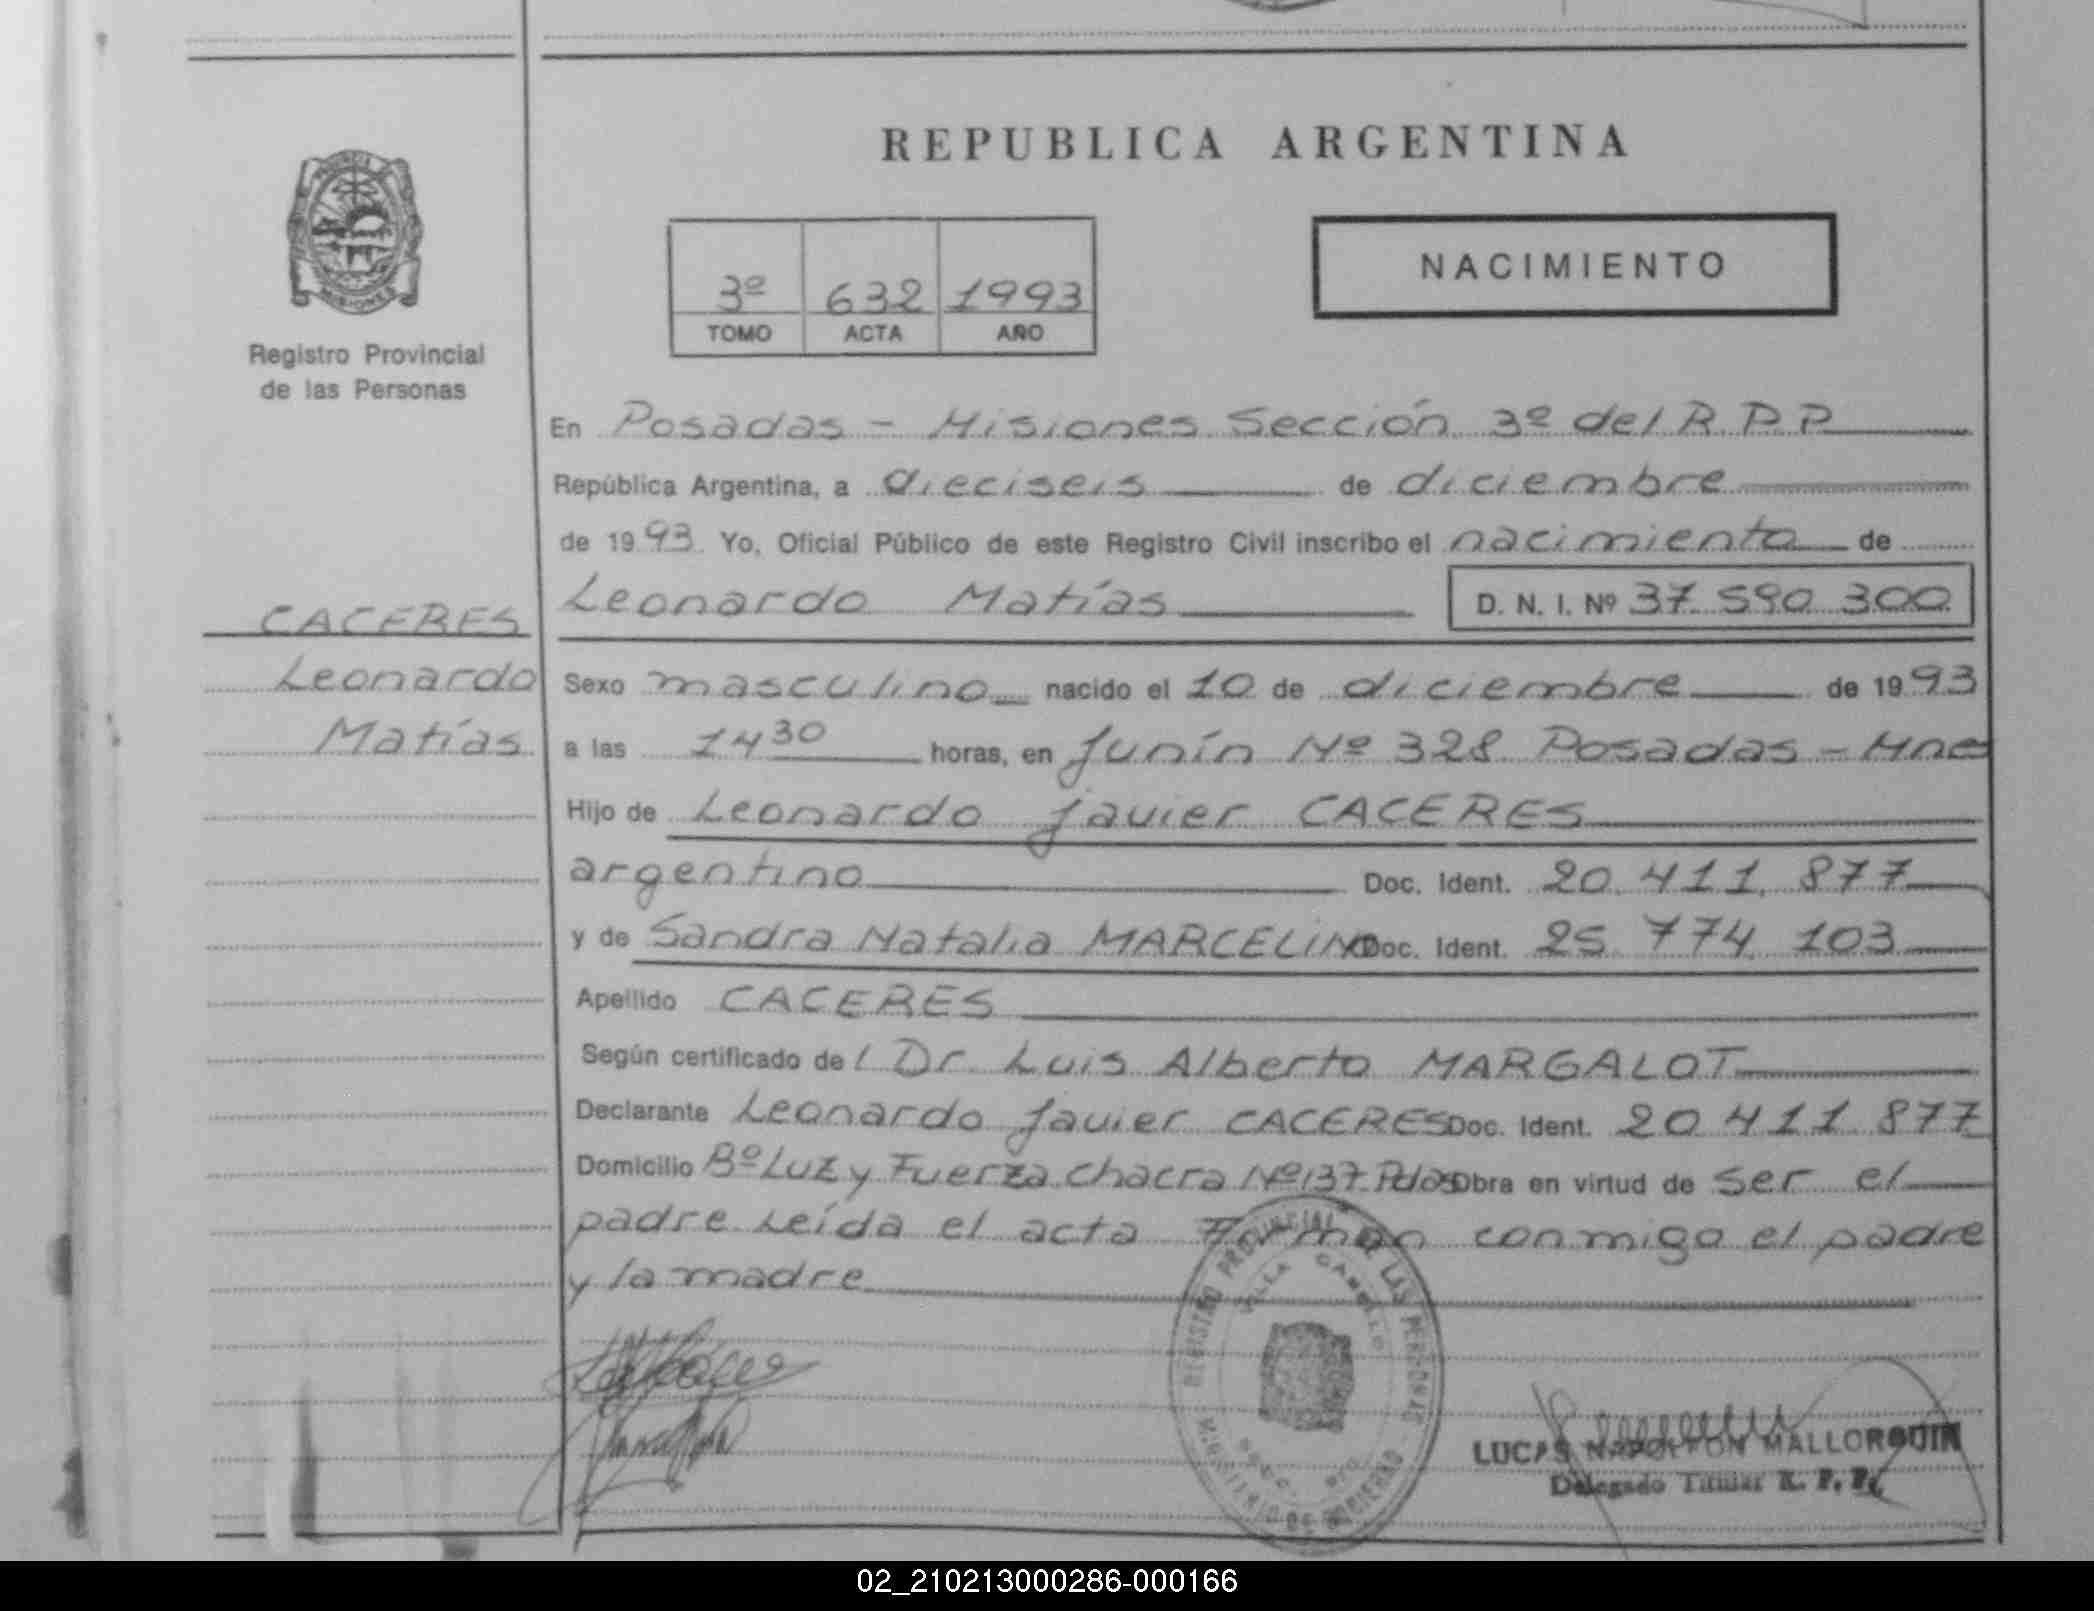 REPUBLICA ARGENTINA
NACIMIENTO
3º 632 1993
TOMO ACTA AÑO
MISIONES
Registro Provincial
de las Personas
CACERES
Leonardo
Matías
En Posadas - Misiones Sección 3º del R.P.P
República Argentina, a dieciseis de diciembre
de 1993 Yo, Oficial Público de este Registro Civil inscribo el nacimiento de
Leonardo Matías D. N. I. Nº 37.590.300
Sexo masculino nacido el 10 de diciembre de 1993
a las 14 30 horas, en Junín Nº 328 Posadas - Mnes
Hijo de Leonardo Javier CACERES
argentino Doc. Ident. 20.411.877
y de Sandra Natalia MARCELINO Doc. Ident. 25.774.103
Apellido CACERES
Según certificado del Dr. Luis Alberto MARGALOT
Declarante Leonardo Javier CACERES Doc. Ident. 20.411.877
Domicilio Bº Luz y Fuerza Chacra Nº 137 Pdas Obra en virtud de ser el
padre Leída el acta Firman conmigo el padre
y la madre
REGISTRO PROVINCIAL DE LAS PERSONAS
VILLA CABELLO
MINISTERIO DE GOBIERNO
LUCAS NAPOLEON MALLORQUIN
Delegado Titular R. P. P.
02_210213000286-000166